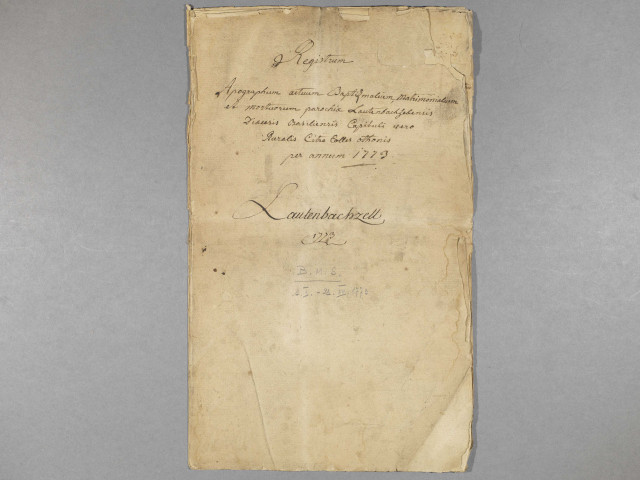 Registrum
Apographum actuum Baptismalium, Matrimonialium
et mortuorum parochiæ Lautenbachzellensis
Diœcesis Basileensis Capituli vero
Ruralis Citra Colles othonis
per annum 1773
Lautenbachzell
1773
B. S.